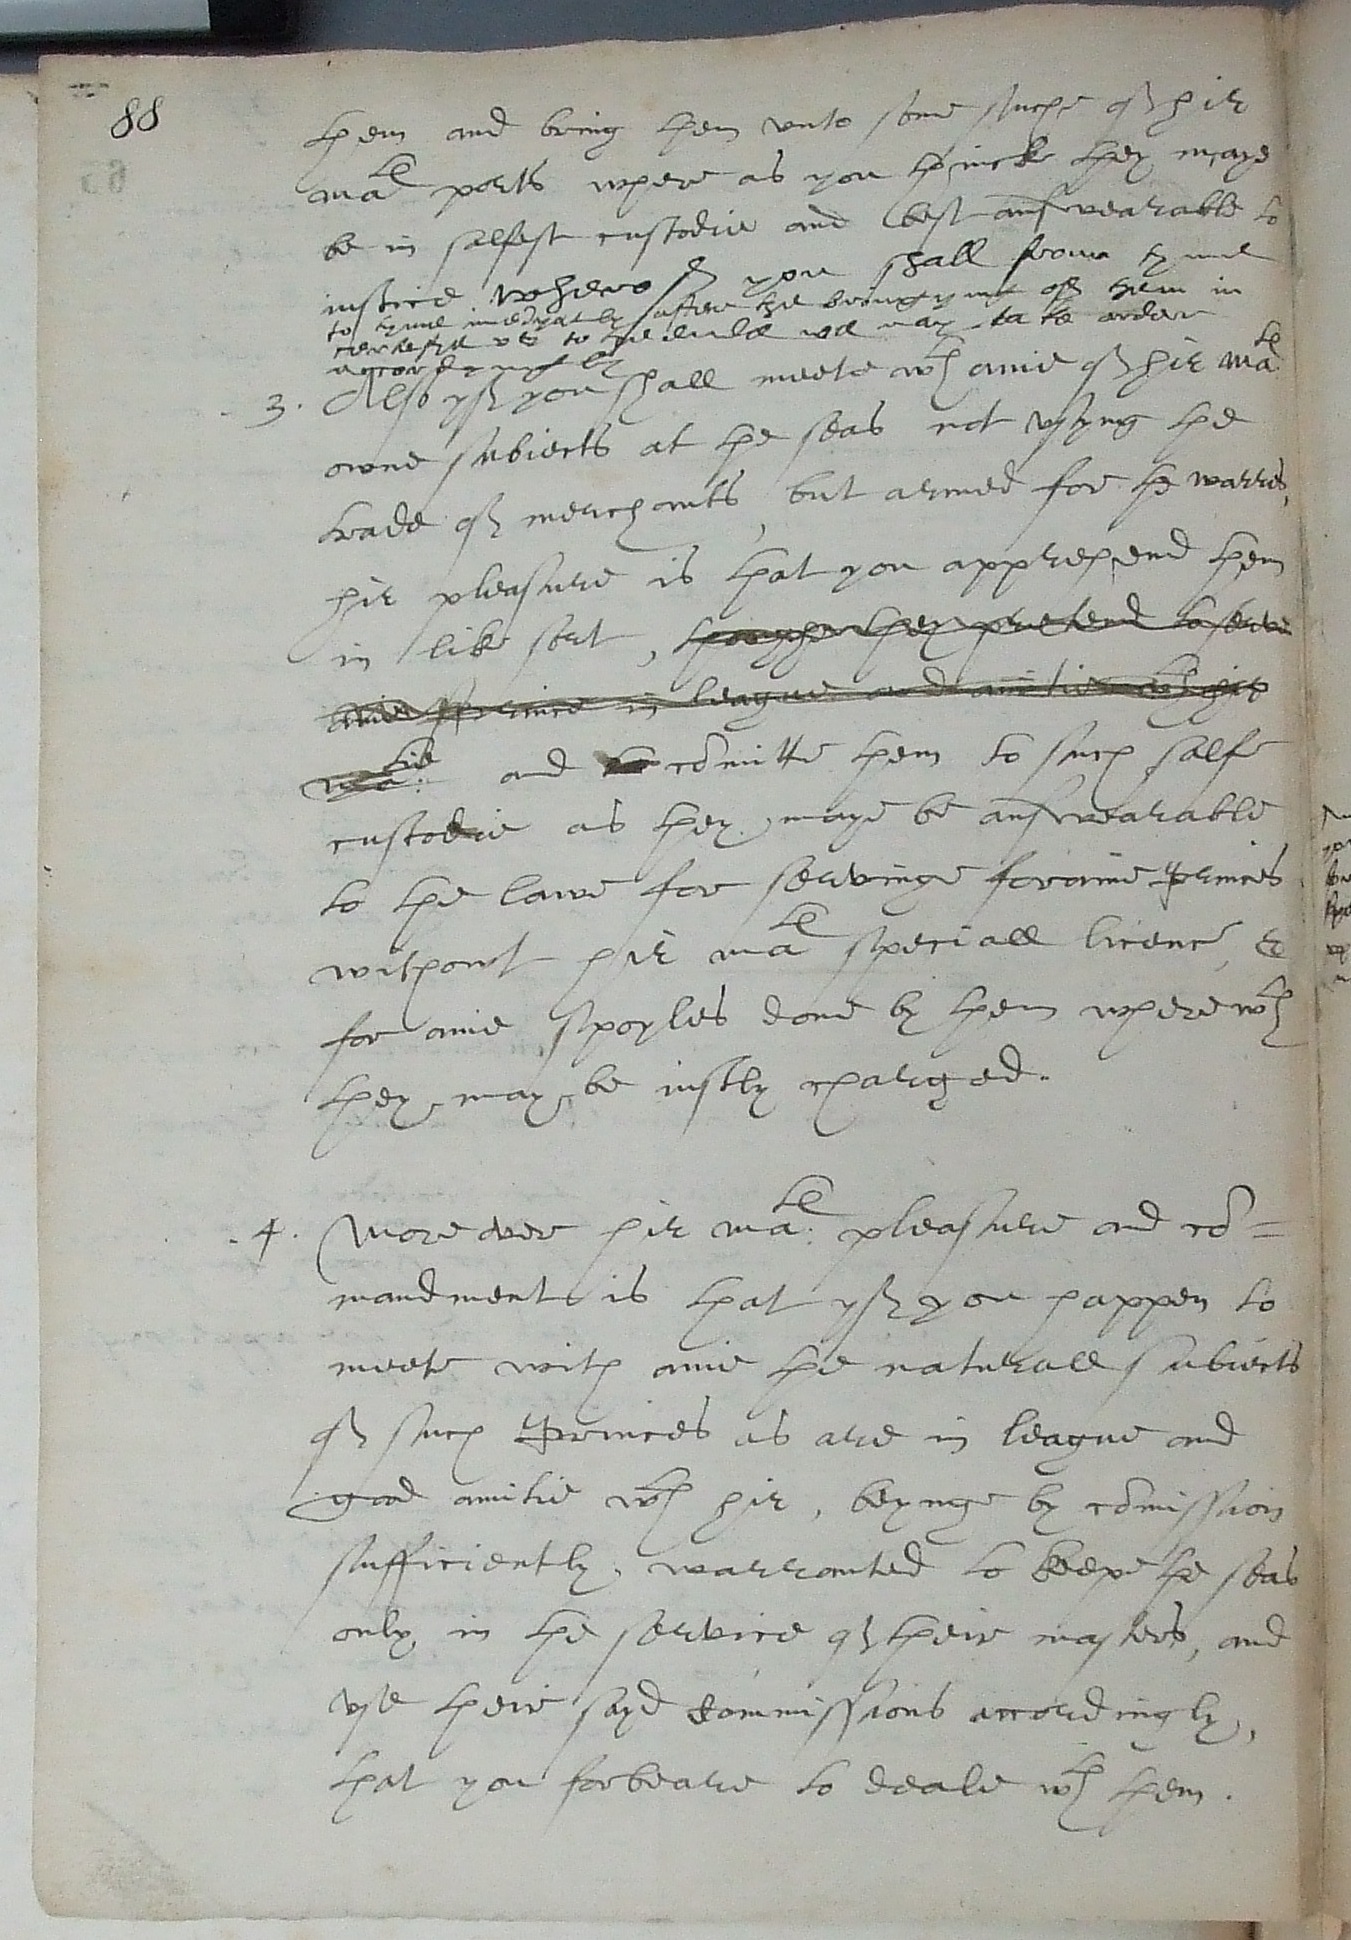 88
them and bring them vnto some suche of hir
matie ports where as you thincke they maye
be in salfest custodie and best answearable to
iustice wherof you shall from tyme
to tyme imedyatly after the bringyng of them in
certefye vs to the ende we may take order
accordyngly
3. Also yf you shall meete wth anie of hir matie
owne subiects at the seas not vsyng the
trade of merchants, but armed for the warres,
hir pleasure is that you apprehend them
in like sort, thoughe they pretend to serve
anie Prince in league and amitie wth hir
matie: and to comitte them to such salfe
custodie as they maye be answearable
to the lawe for servinge foraine Princes
without hir matie speciall licence, &
for anie spoyles done by them wherewth
they may be iustly charged.
4. Moreover hir matie: pleasure and co=
mandment is that yf you happen to
meete with anie the naturall subiects
of such Princes as are in league and
good amitie wth hir, beynge by comission
sufficiently warranted to keepe the seas
only in the service of their maysters, and
vse their sayd commissions accordingly,
that you forbeare to deale wth them.